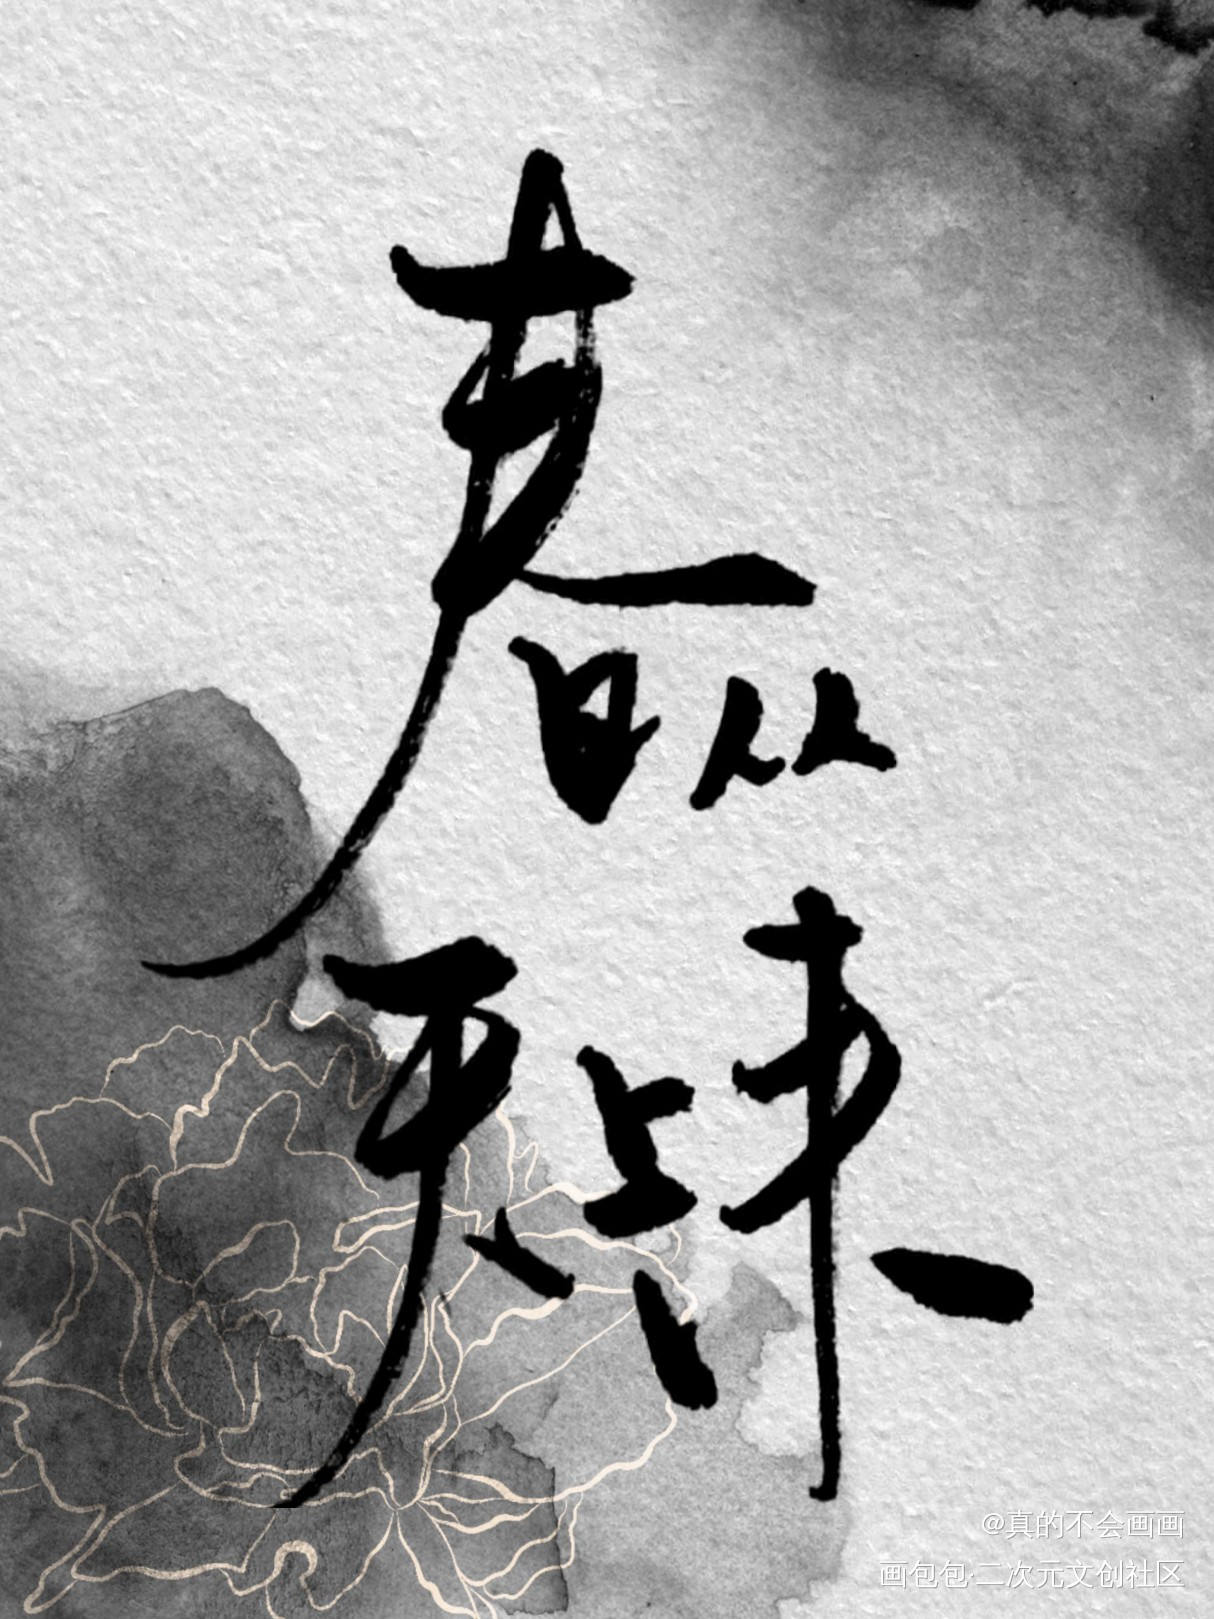 春从
天上来
@真的不会画画
画包包·二次元文创社区